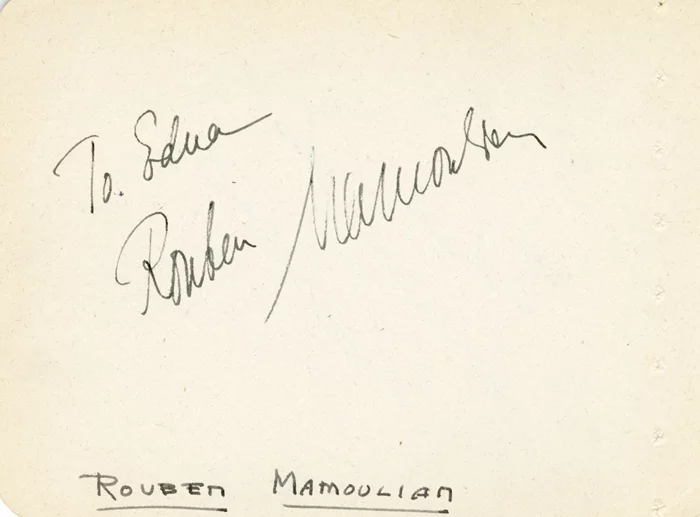 To. Edna
Rouben Mamoulian
ROUBEN MAMOULIAN